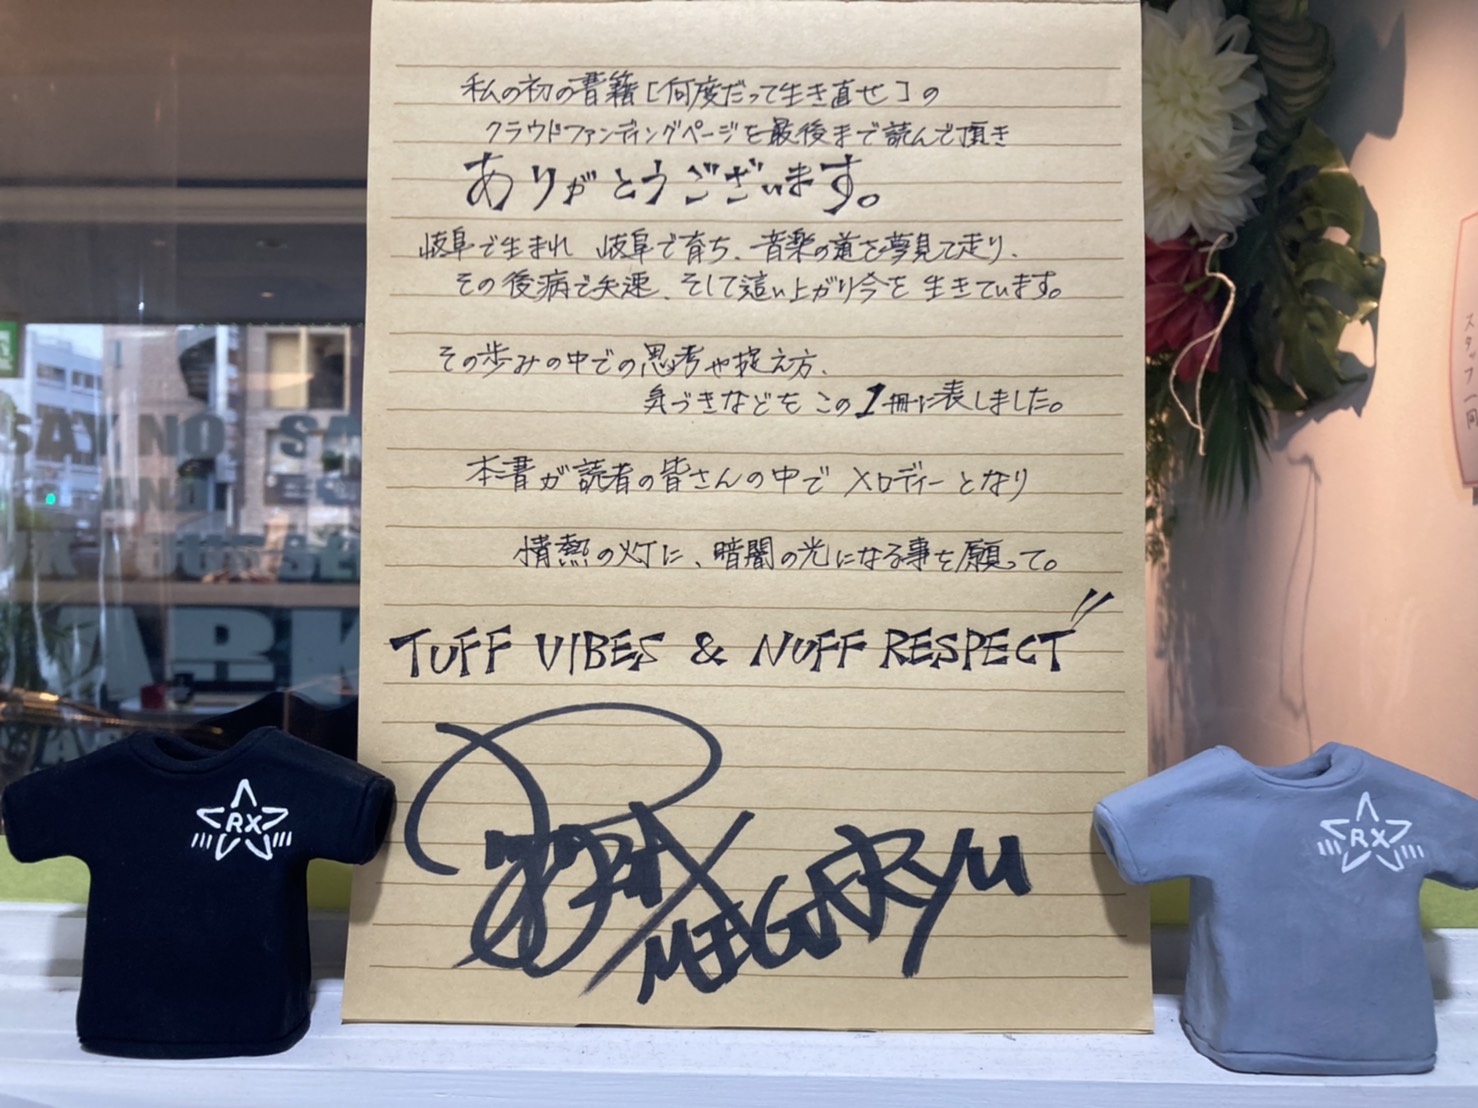 私の初の書籍[何度だって生き直せ]の
クラウドファンディングページを最後まで読んで頂き
ありがとうございます。
岐阜で生まれ 岐阜で育ち、音楽の道を夢見て走り、
その後病で失速、そして這い上がり今を生きています。
その歩みの中での思考や捉え方、
気づきなどをこの1冊に表しました。
本書が読者の皆さんの中でメロディーとなり
情熱の灯に、暗闇の光になる事を願って。
TUFF VIBES & NUFF RESPECT"
MEGARYU
RX
RX
SAY NO
スタッフ一同